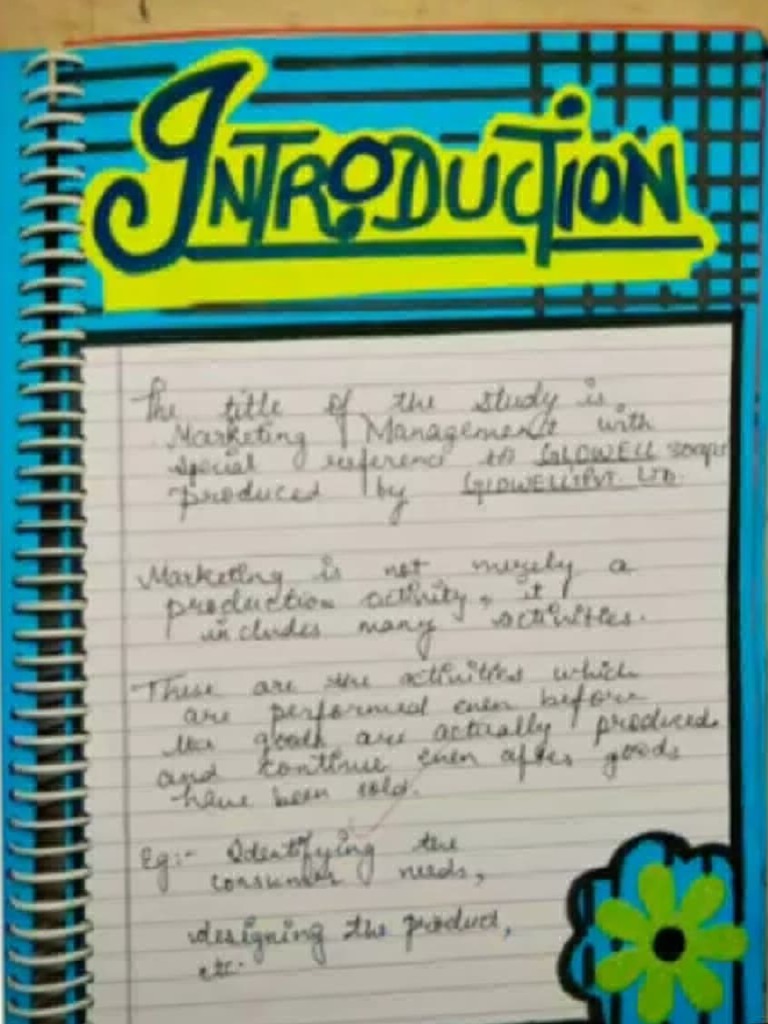 INTRODUCTION
The title of the study is
Marketing Management with
special reference to GLOWELL soaps
produced by GLOWELL PVT. LTD.
Marketing is not merely a
production activity, it
includes many activities.
These are the activities which
are performed even before
the goods are actually produced
and continue even after goods
have been sold.
Eg:- Identifying the
consumer needs,
designing the product,
etc.